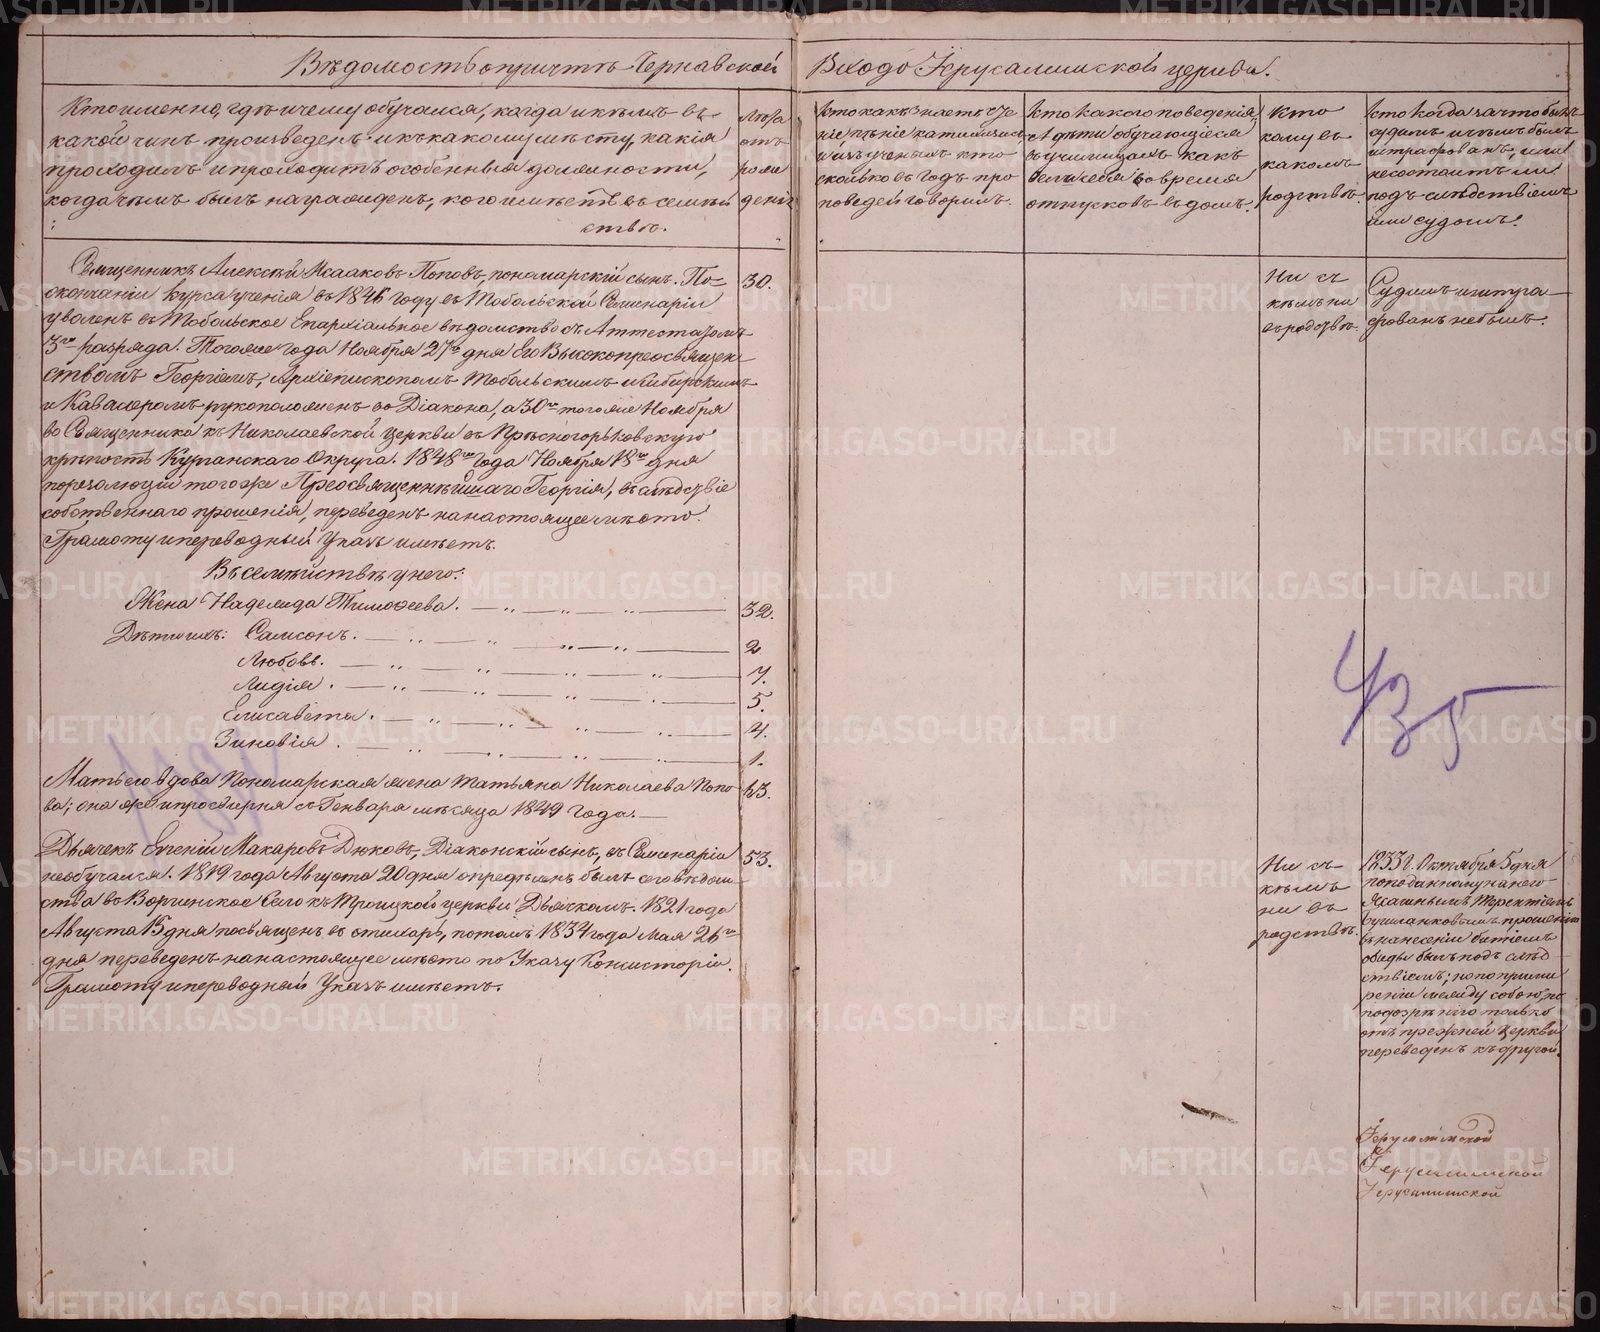 Вѣдомость о причтѣ Чернавской Входо Іерусалимской церкви.
Кто именно, гдѣ и чему обучался, когда и кѣмъ въ
какой чинъ произведенъ и къ какому мѣсту, какія
проходилъ и проходитъ особенныя должности,
когда чѣмъ былъ награжденъ, кого имѣетъ въ семей
ствѣ.
Лѣта
отъ
рож
денія
Кто какъ знаетъ чте
ніе, пѣніе катихизисъ,
и изъ ученыхъ кто
сколько въ годъ про
поведей говорилъ.
Кто какого поведенія,
и дѣти обучающіеся
въ училищахъ какъ
вели себя во время
отпусковъ въ домъ.
Кто
кому въ
какомъ
родствѣ.
Кто когда за что былъ
судимъ и чѣмъ былъ
штрафованъ, или
не состоитъ ли
подъ слѣдствіемъ
или судомъ?
Священникъ Алексѣй Исааковъ Поповъ, пономарскій сынъ. По
окончаніи курса ученія въ 1846 году въ Тобольской Семинаріи
уволенъ въ Тобольское Епархіальное вѣдомство съ Аттестатомъ
3го разряда. Того же года Ноября 27го дня Его Высокопреосвящен
ствомъ Георгіемъ, Архіепископомъ Тобольскимъ и Сибирскимъ
и Кавалеромъ рукоположенъ во Діакона, а 30го того же Ноября
во Священника къ Николаевской церкви въ Прѣсногорьковскую
крѣпость Курганскаго Округа. 1848го года Ноября 18го дня
по резолюціи того же Преосвященнѣйшаго Георгія, въ слѣдствіе
собственнаго прошенія, переведенъ на настоящее мѣсто.
Грамоту и переводный Указъ имѣетъ.
30.
Ни съ
кѣмъ ни
въ родствѣ.
Судимъ и штра
фованъ не былъ.
Въ семействѣ у него:
Жена Надежда Тимофеева. 32.
Дѣти ихъ: Самсонъ. 2
Любовь. 7.
Лидія. 5.
Елисавета. 4.
Зиновія. 1.
435
Мать его вдова Пономарская жена Татьяна Николаева Попо 63.
ва; она же и просфирня съ Генваря мѣсяца 1849 года.
Дьячекъ Евгеній Макаровъ Дюковъ, Діаконскій сынъ, въ Семинаріи 53.
не обучался. 1819 года Августа 20 дня опредѣленъ былъ сего вѣдом
ства въ Село къ Троицкой церкви Дьячкомъ. 1821 года
Августа 15 дня посвященъ въ стихарь, потомъ 1834 года Мая 26го
дня переведенъ на настоящее мѣсто по Указу Консисторіи.
Грамоту и переводный Указъ имѣетъ.
Ни съ
кѣмъ
ни въ
родствѣ.
1833 г. Октября 5 дня
по поданному на него
прошенію
въ нанесеніи битіемъ
обиды былъ подъ слѣд
ствіемъ; но по прими
реніи между собою, по
подозрѣнію только
отъ прежней церкви
переведенъ къ другой.
Іерусалимской
Іерусалимской
Іерусалимской
METRIKI.GASO-URAL.RU